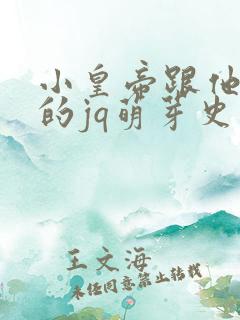 小皇帝跟他
的jq萌芽史
王文海
未经同意禁止转载